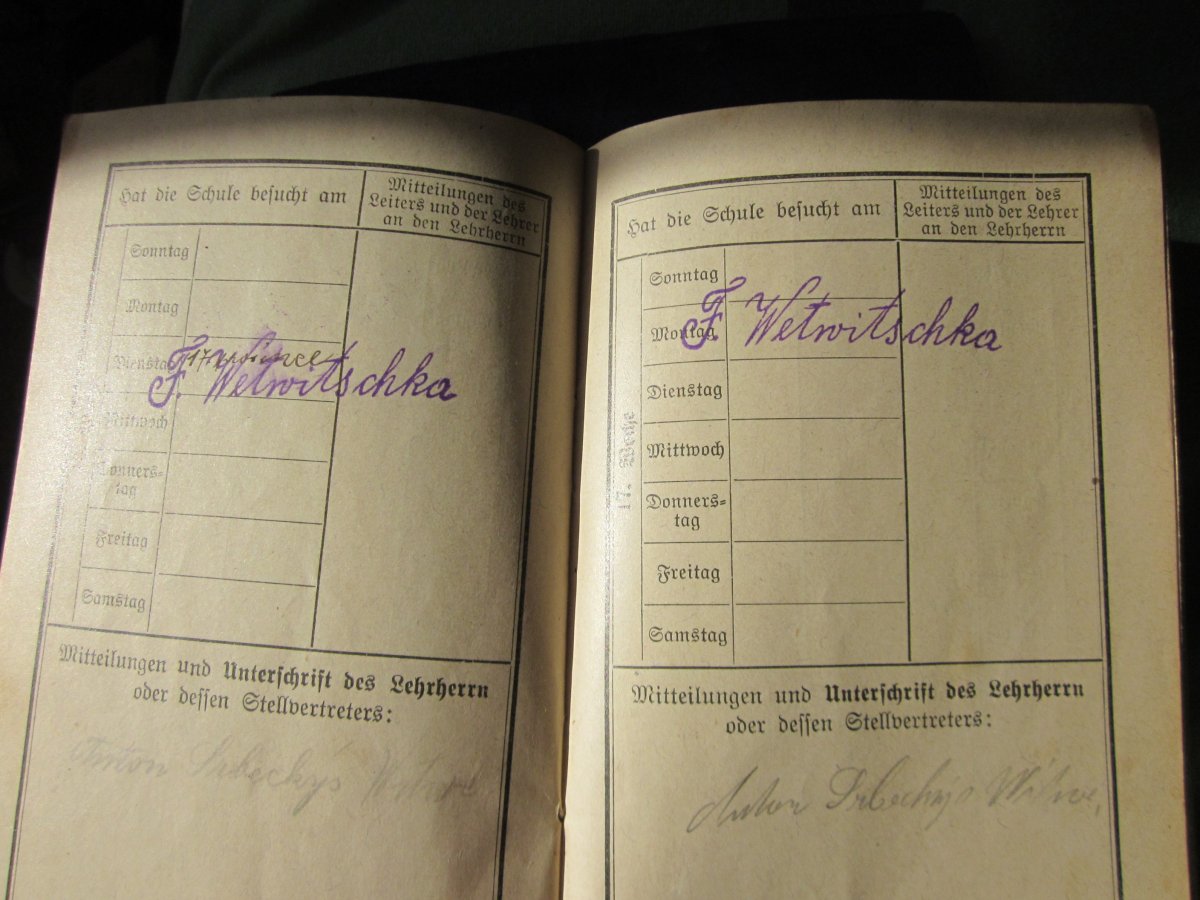 Hat die Schule besucht am
Mitteilungen des
Leiters und der Lehrer
an den Lehrherrn
Sonntag
Montag
Dienstag
F. Wetwitschka
Mittwoch
Donners=
tag
Freitag
Samstag
Mitteilungen und Unterschrift des Lehrherrn
oder dessen Stellvertreters:
Anton Srbeckys Witwe
Hat die Schule besucht am
Mitteilungen des
Leiters und der Lehrer
an den Lehrherrn
Sonntag
F. Wetwitschka
Montag
Dienstag
Mittwoch
17. Woche
Donners=
tag
Freitag
Samstag
Mitteilungen und Unterschrift des Lehrherrn
oder dessen Stellvertreters:
Anton Srbeckys Witwe,